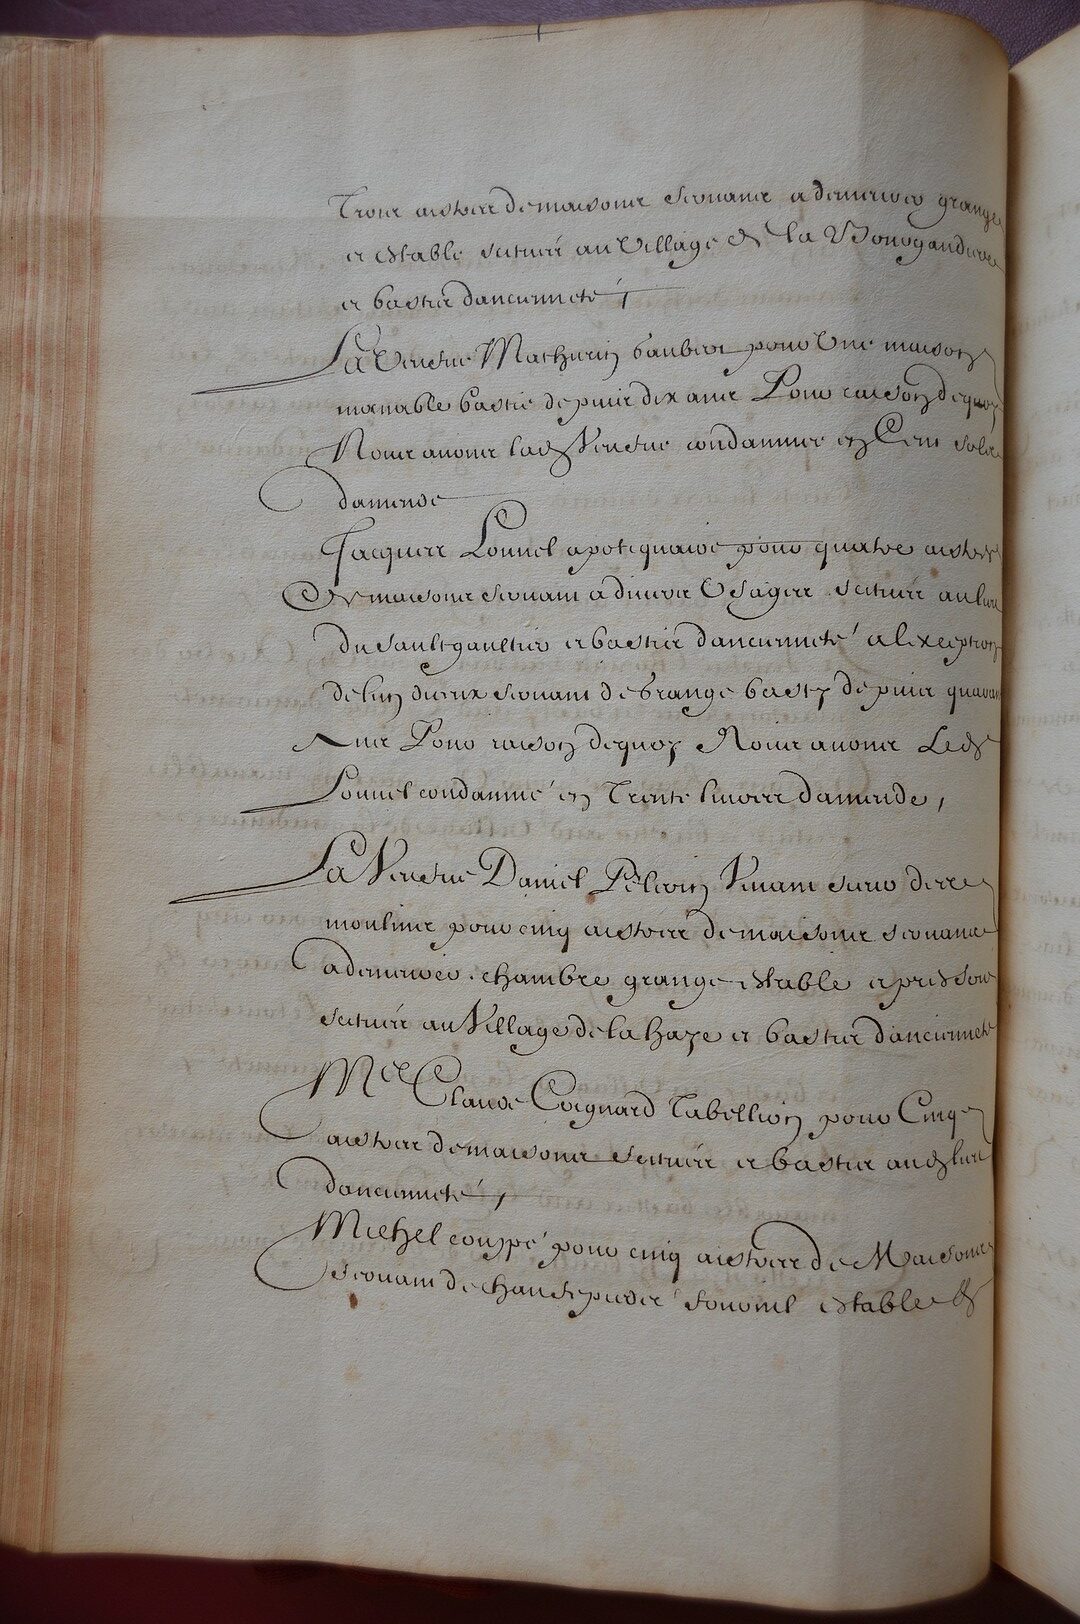 Trois aistres de maisons servans a demeurer grange
et estable scituéz au Village de la Bourgandiere
et bastis dancienneté,
La Veusve Mathurin baubert pour Une maison
manable bastie depuis dix ans Pour raison dequoy
Nous avons lad Veusve condamnee en Cent solz
damende
Jacques Lonnel apotiquaire pour quatre aistres
De maisons servans a divers Usages scitués au lieu
du sault gaultier et bastis dancienneté a lexception
delun diceux servant de grange basty depuis quarante
Ans Pour raison dequoy Nous avons Led
Lonnel condamné en Trente livres damende,
La Veusve Daniel Pelerin Vivant sieur des
moulins pour cinq aistres de maisons servans
a demeurer chambre grange estable et pressoir
scitués au Village de la haye et bastis dancienneté
Mre Claude Coignard Tabellion pour Cinq
aistres de maisons scitués et bastis aud lieu
dancienneté,
Michel couppé pour cinq aistres de Maisons
servans de chaufepieds fournil estable et